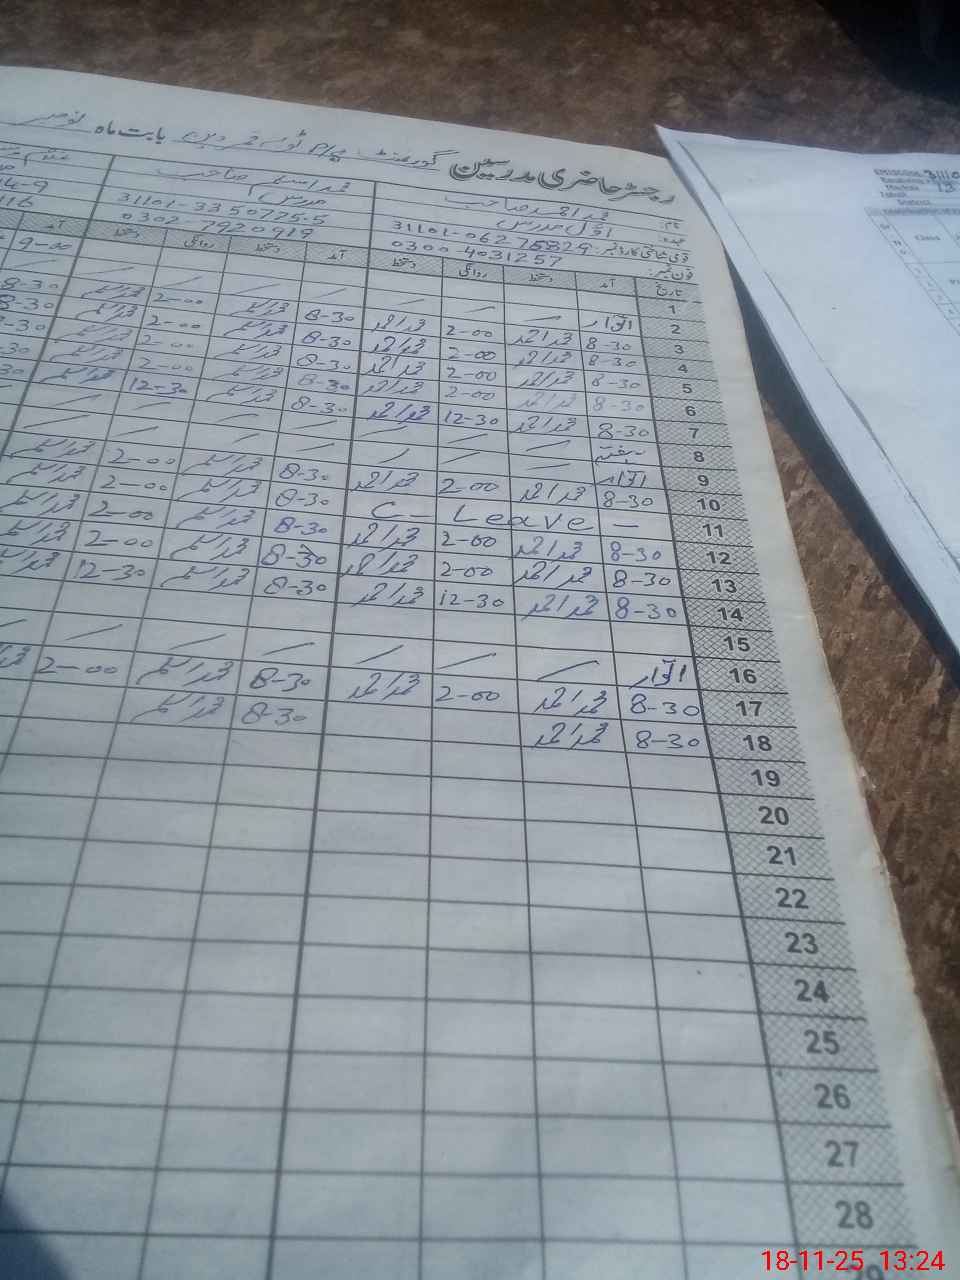 رجسٹر حاضری مدرسین گورنمنٹ بابت ماہ نومبر
نام: محمد احمد صاحب محمد اسلم صاحب
عہدہ: اول مدرس مدرس
قومی شناختی کارڈ نمبر: 31101-0627582-9 31101-3350775-5
فون نمبر: 0300-4031257 0302 7920919
تاریخ آمد دستخط روانگی دستخط آمد دستخط روانگی دستخط آمد
1
2 اتوار
3 8-30 محمد احمد 2-00 محمد احمد 8-30 محمد اسلم 2-00 محمد اسلم 8-30
4 8-30 محمد احمد 2-00 محمد احمد 8-30 محمد اسلم 2-00 محمد اسلم 8-30
5 8-30 محمد احمد 2-00 محمد احمد 8-30 محمد اسلم 2-00 محمد اسلم 8-30
6 8-30 محمد احمد 2-00 محمد احمد 8-30 محمد اسلم 2-00 محمد اسلم
7 8-30 محمد احمد 12-30 محمد احمد 8-30 محمد اسلم 12-30 محمد اسلم
8 ہفتہ
9 اتوار
10 8-30 محمد احمد 2-00 محمد احمد 8-30 محمد اسلم 2-00 محمد اسلم
11 C- Leave - 8-30 محمد اسلم 2-00 محمد اسلم
12 8-30 محمد احمد 2-00 محمد احمد 8-30 محمد اسلم 2-00 محمد اسلم
13 8-30 محمد احمد 2-00 محمد احمد 8-30 محمد اسلم 2-00 محمد اسلم
14 8-30 محمد احمد 12-30 محمد احمد 8-30 محمد اسلم 12-30 محمد اسلم
15
16 اتوار
17 8-30 محمد احمد 2-00 محمد احمد 8-30 محمد اسلم 2-00
18 8-30 محمد احمد 8-30 محمد اسلم
19
20
21
22
23
24
25
26
27
28
29
Class
18-11-25 13:24